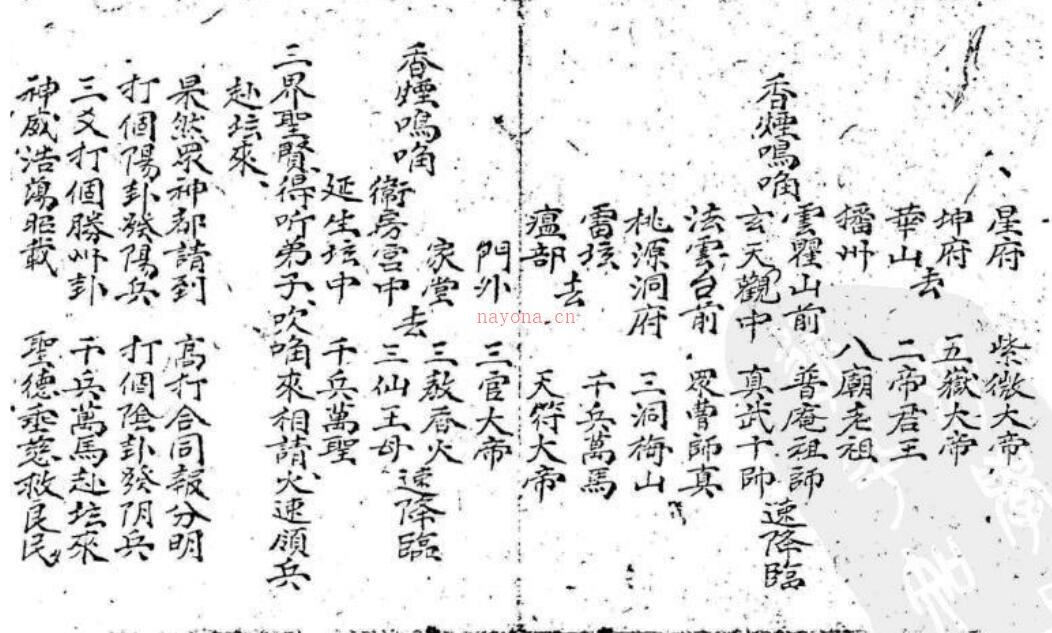 香煙鳴角
星府 紫微大帝
坤府 五嶽大帝
華山去 二帝君王
播州 八廟老祖
雲瞿山前 普庵祖師
玄天觀中 真武十帥 速降臨
法雲台前 眾曹師真
桃源洞府 三洞梅山
雷𩆜去 千兵萬馬
瘟部 天符大帝
門外 三官大帝
香煙鳴角
家堂 三教香火
衙房宮中去 三仙王母 速降臨
延生坛中 千兵萬聖
三界聖賢得听弟子吹角來相請火速領兵
赴坛來、
果然眾神都請到 高打合同報分明
打個陽卦發陽兵 打個陰卦發阴兵
三爻打個勝卦 千兵萬馬赴坛來
神威浩蕩昭載 聖德垂慈救良民
nayona.cn